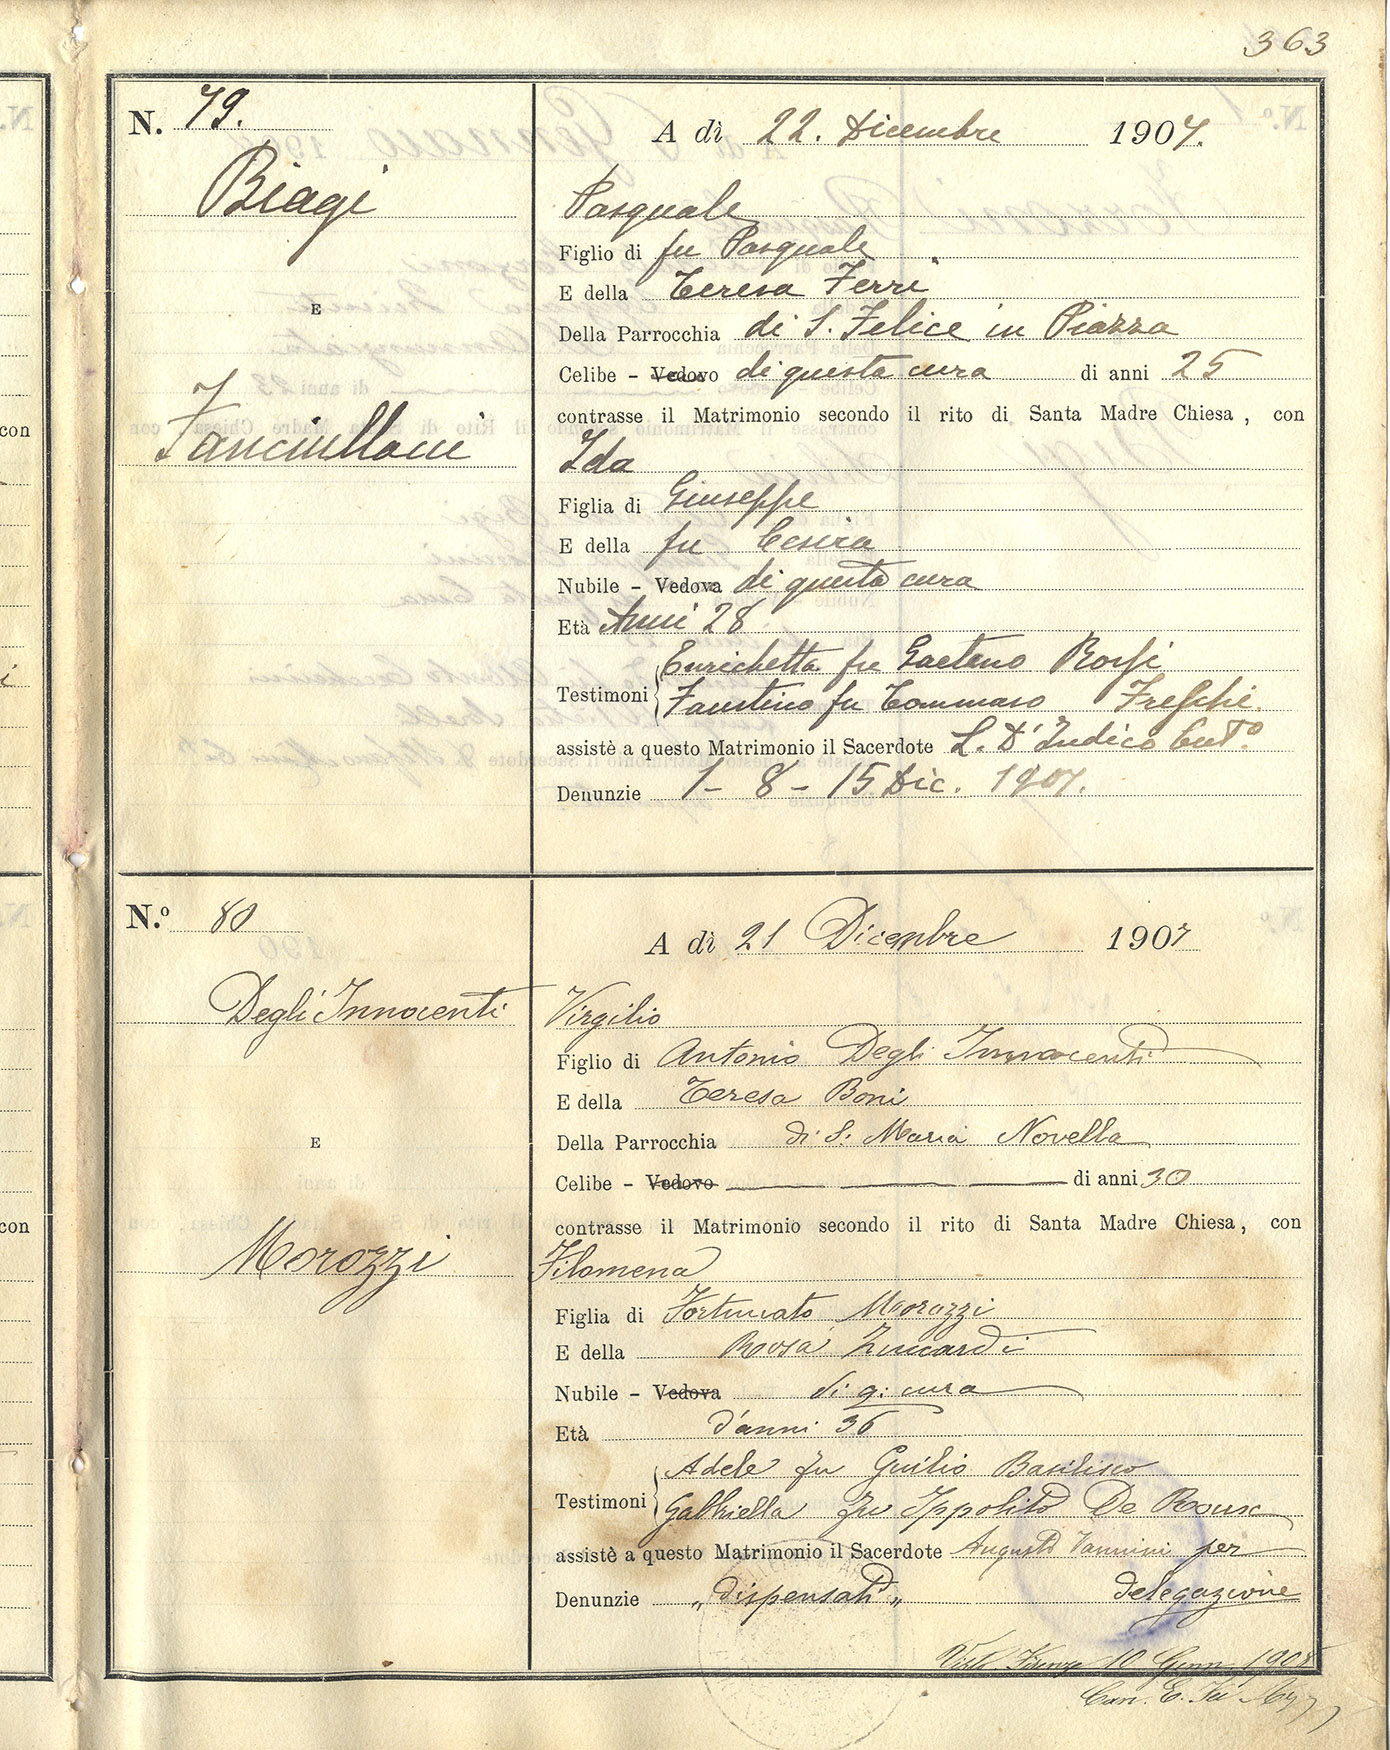 363
N. 79.
A dì 22. Dicembre 1907.
Biagi
E
Fanciullacci
Pasquale
Figlio di fu Pasquale
E della Teresa Ferri
Della Parrocchia di S. Felice in Piazza
Celibe - Vedovo di questa cura di anni 25
contrasse il Matrimonio secondo il rito di Santa Madre Chiesa, con
Ida
Figlia di Giuseppe
E della fu Cesira
Nubile - Vedova di questa cura
Età Anni 28
Testimoni Enrichetta fu Gaetano Rossi
Faustino fu Tommaso Freschi.
assistè a questo Matrimonio il Sacerdote L. D'Indico Curto.
Denunzie 1 - 8 - 15 Dic. 1907.
N.º 80
A dì 21 Dicembre 1907
Degli Innocenti
E
Morozzi
Virgilio
Figlio di Antonio Degli Innocenti
E della Teresa Boni
Della Parrocchia di S. Maria Novella
Celibe - Vedovo di anni 30
contrasse il Matrimonio secondo il rito di Santa Madre Chiesa, con
Filomena
Figlia di Fortunato Morozzi
E della Rosa Zuccardi
Nubile - Vedova di q. cura
Età d'anni 36
Testimoni Adele fu Guilio Basilisco
Gabbriella fu Ippolito De Roux
assistè a questo Matrimonio il Sacerdote Augusto Vannini per
Denunzie „dispensati„ delegazione
Visto Firenze 10 Genn. 1908
Can. E.
con
con